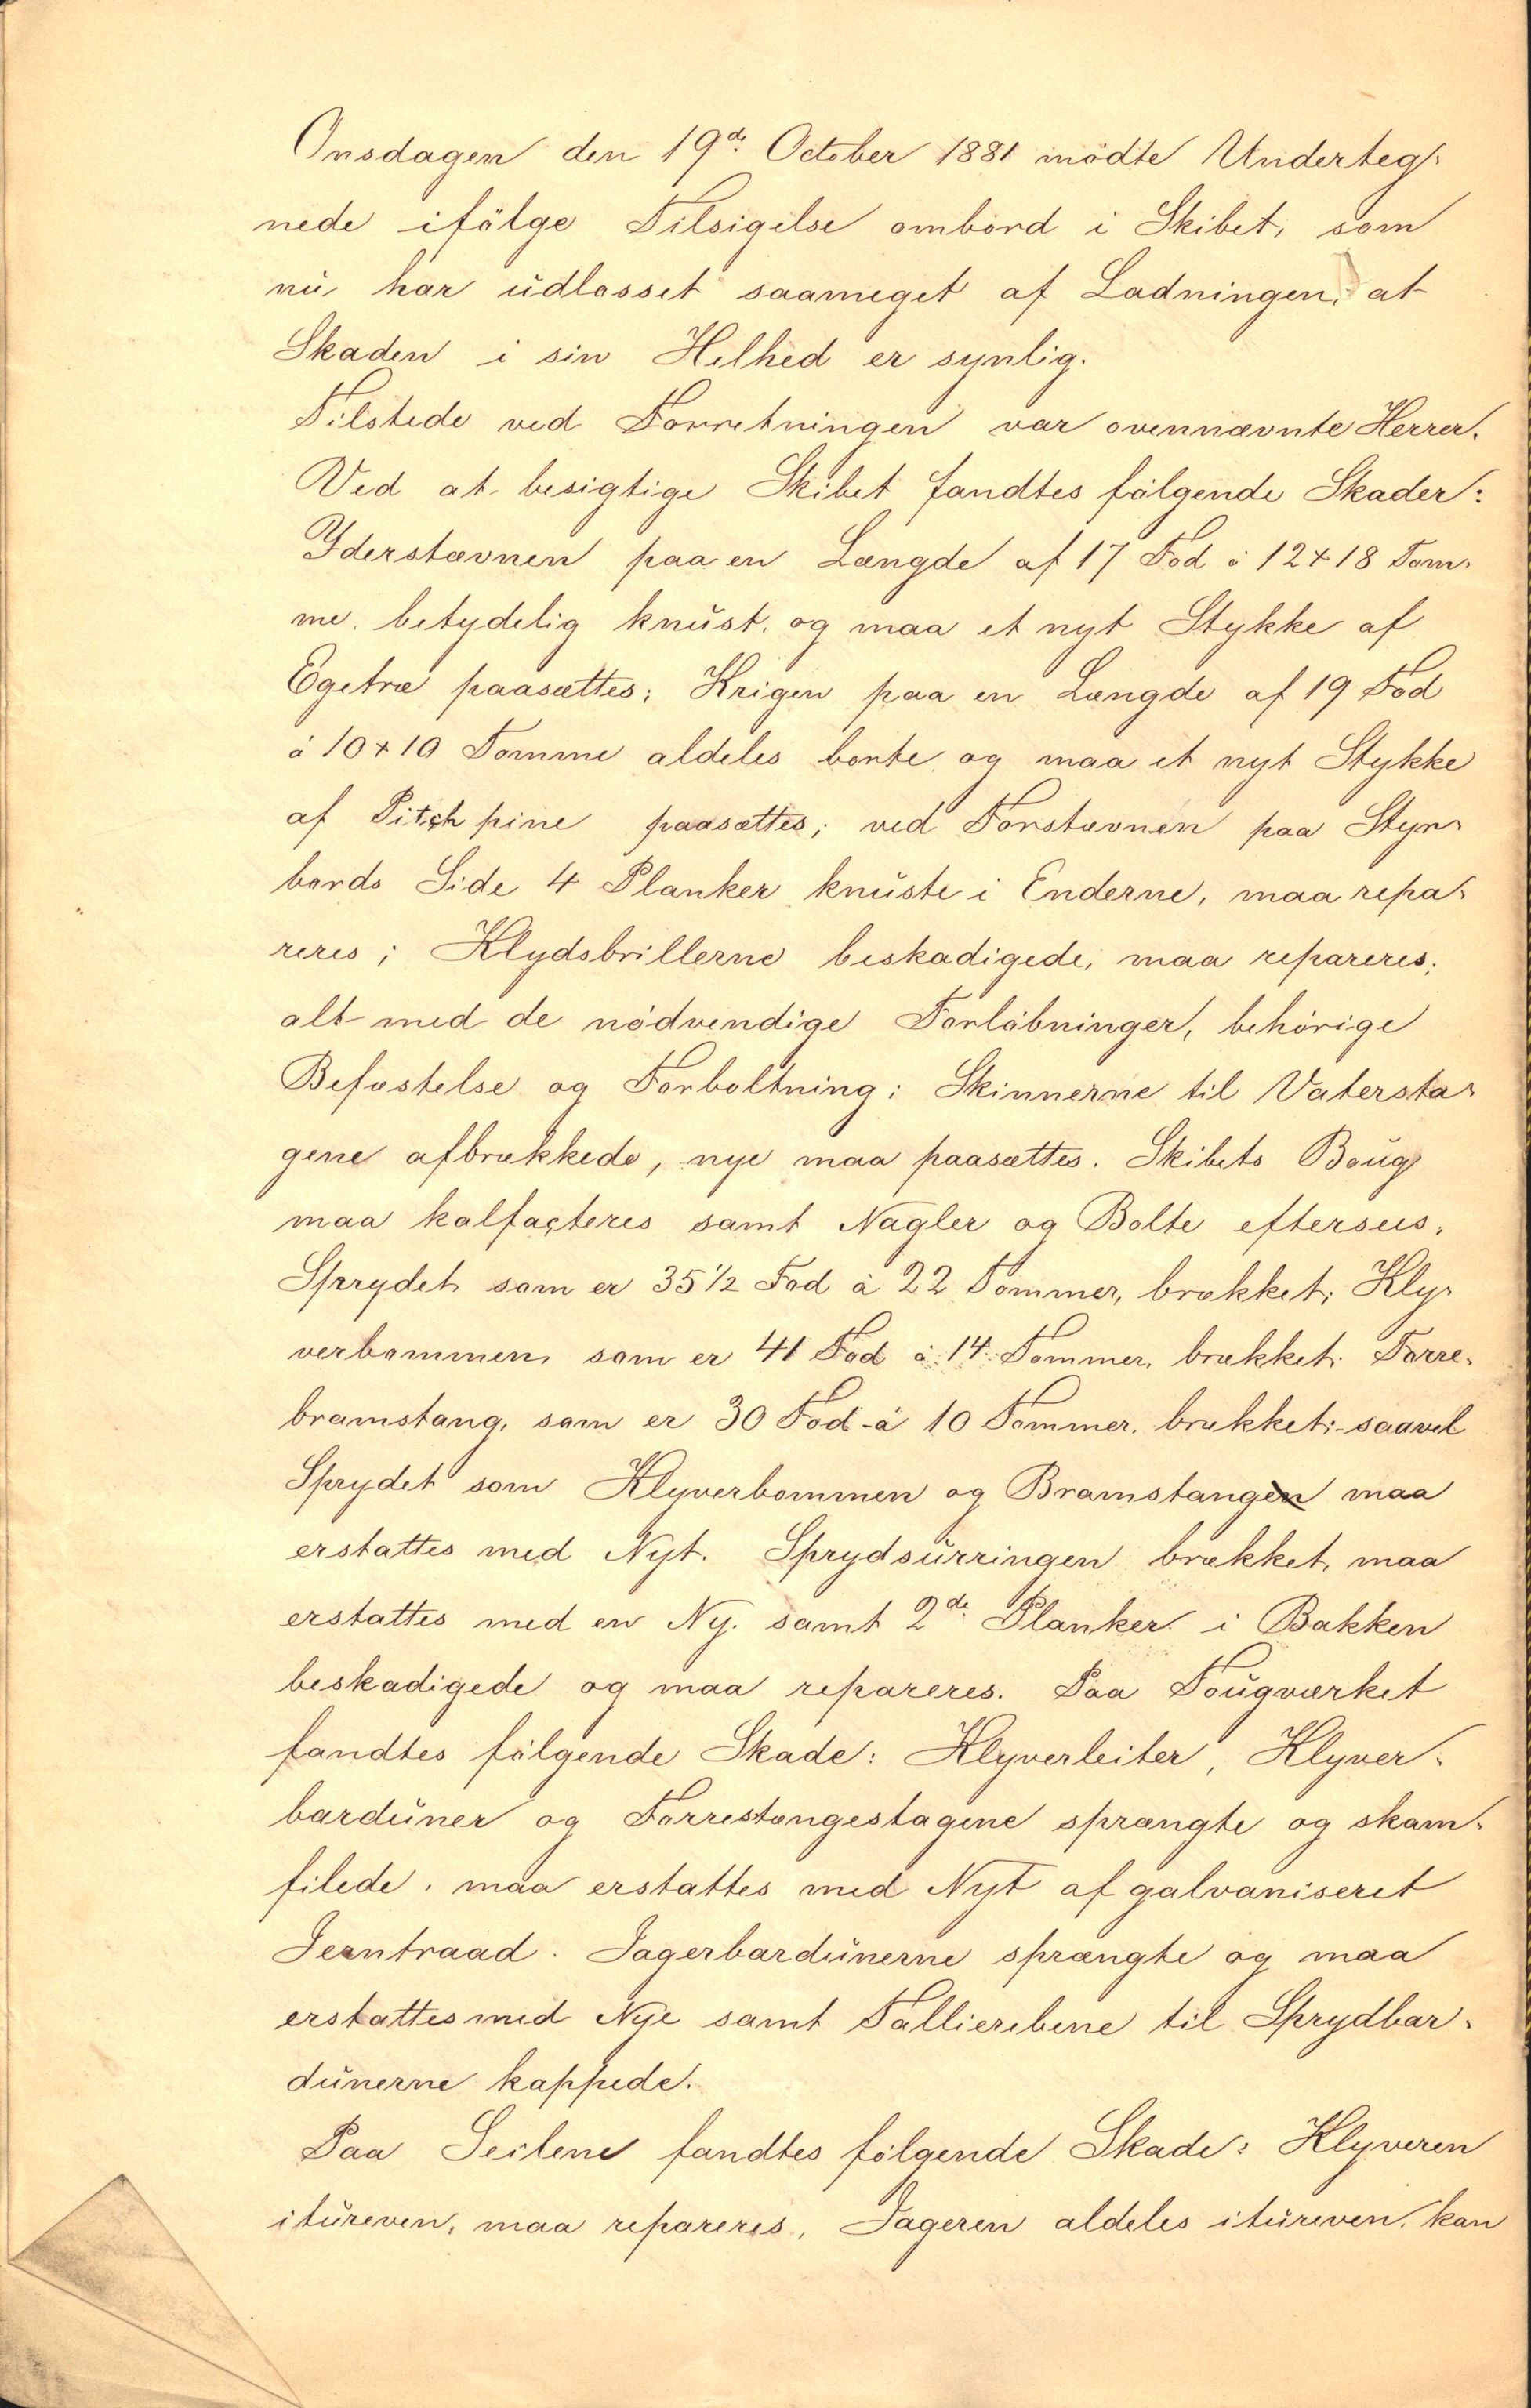 Onsdagen den 19de October 1881 mödte Underteg-
nede ifölge Tilsigelse ombord i Skibet, som
nu har udlosset saameget af Ladningen, at
Skaden i sin Helhed er synlig.
Tilstede ved Forretningen var ovennævnte Herrer.
Ved at besigtige Skibet fandtes fölgende Skader:
Yderstævnen paa en Længde af 17 Fod á 12 x 18 Tom-
me betydelig knust, og maa et nyt Stykke af
Egetræ paasættes; Krigen paa en Længde af 19 Fod
á 10 x 10 Tomme aldeles borte og maa et nyt Stykke
af Pitch pine paasættes; ved Forstævnen paa Styr-
bords Side 4 Planker knuste i Enderne, maa repa-
reres; Klydsbrillerne beskadigede, maa repareres;
alt med de nödvendige Forlöbninger, behörige
Befæstelse og Forboltning; Skinnerne til Vatersta-
gene afbrækkede, nye maa paasættes. Skibets Boug
maa kalfacteres samt Nagler og Bolte eftersees.
Sprydet som er 35 1/2 Fod á 22 Tommer, brækket; Kly-
verbommen som er 41 Fod á 14 Tommer, brækket; Forre-
bramstang, som er 30 Fod á 10 Tommer, brækket; saavel
Sprydet som Klyverbommen og Bramstangen maa
erstattes med Nyt. Sprydsurringen brækket, maa
erstattes med en Ny. samt 2de Planker i Bakken
beskadigede og maa repareres. Paa Tougværket
fandtes fölgende Skade: Klyverleiter, Klyver-
barduner og Forrestangestagene sprængte og skam-
filede, maa erstattes med Nyt af galvaniseret
Jerntraad. Jagerbardunerne sprængte og maa
erstattes med Nye samt Tallierebene til Sprydbar-
dunerne kappede.
Paa Seilene fandtes fölgende Skade: Klyveren
itureven, maa repareres, Jageren aldeles itureven, kan